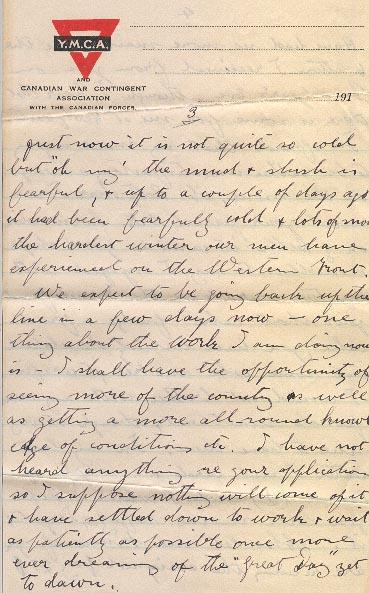 Y.M.C.A.
AND
CANADIAN WAR CONTINGENT
ASSOCIATION
WITH THE CANADIAN FORCES.
191
3
just now it is not quite so cold
but "oh my" the mud & slush is
fearful, & up to a couple of days ago
it had been fearfully cold & lots of
the hardest winter our men have
experienced on the Western Front.
We expect to be going back up the
line in a few days now – one
thing about the work I am doing now
is – I shall have the opportunity of
seeing more of the country as well
as getting a more all-round knowl
edge of conditions etc. I have not
heard anything re your application
so I suppose nothing will come of it
& have settled down to work & wait
as patiently as possible once more
ever dreaming of the "Great Day" yet
to dawn.